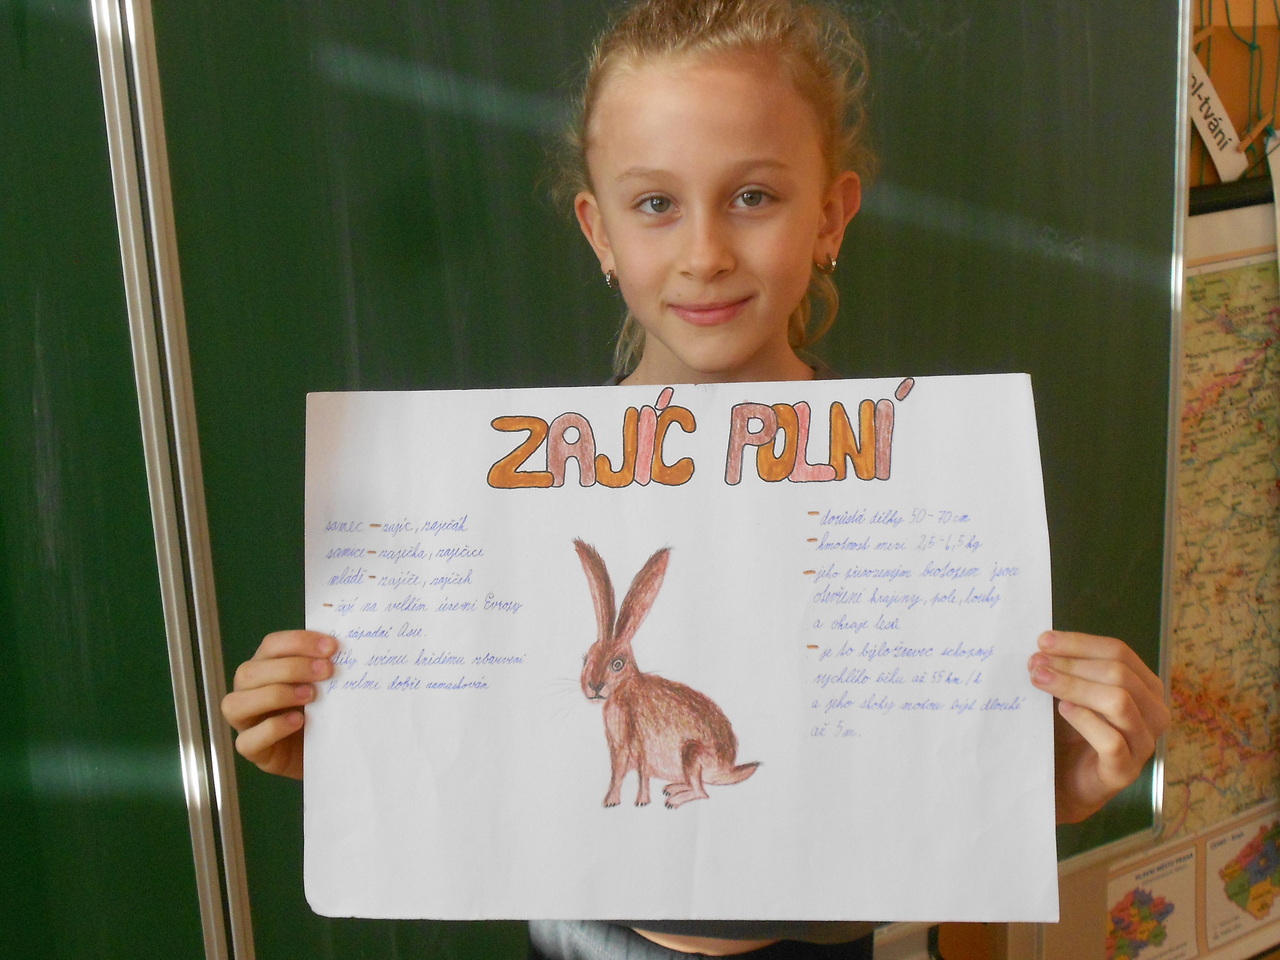 ZAJÍC POLNÍ
samec - zajíc, zaječák
samice - zaječka, zaječice
mládě - zajíče, zajíček
- žijí na velkém území Evropy
a západní Asie.
díky svému hnědému zbarvení
je velmi dobře zamaskován
- dorůstá délky 50-70 cm
- hmotnost mezi 2,5-6,5 kg
- jeho přirozeným biotopem jsou
otevřené krajiny, pole, louky
a okraje lesů.
- je to býložravec schopný
rychlého běhu až 55 km/h
a jeho skoky mohou být dlouhé
až 5m.
nl-tvání
HLAVNÍ MĚSTO PRAHA